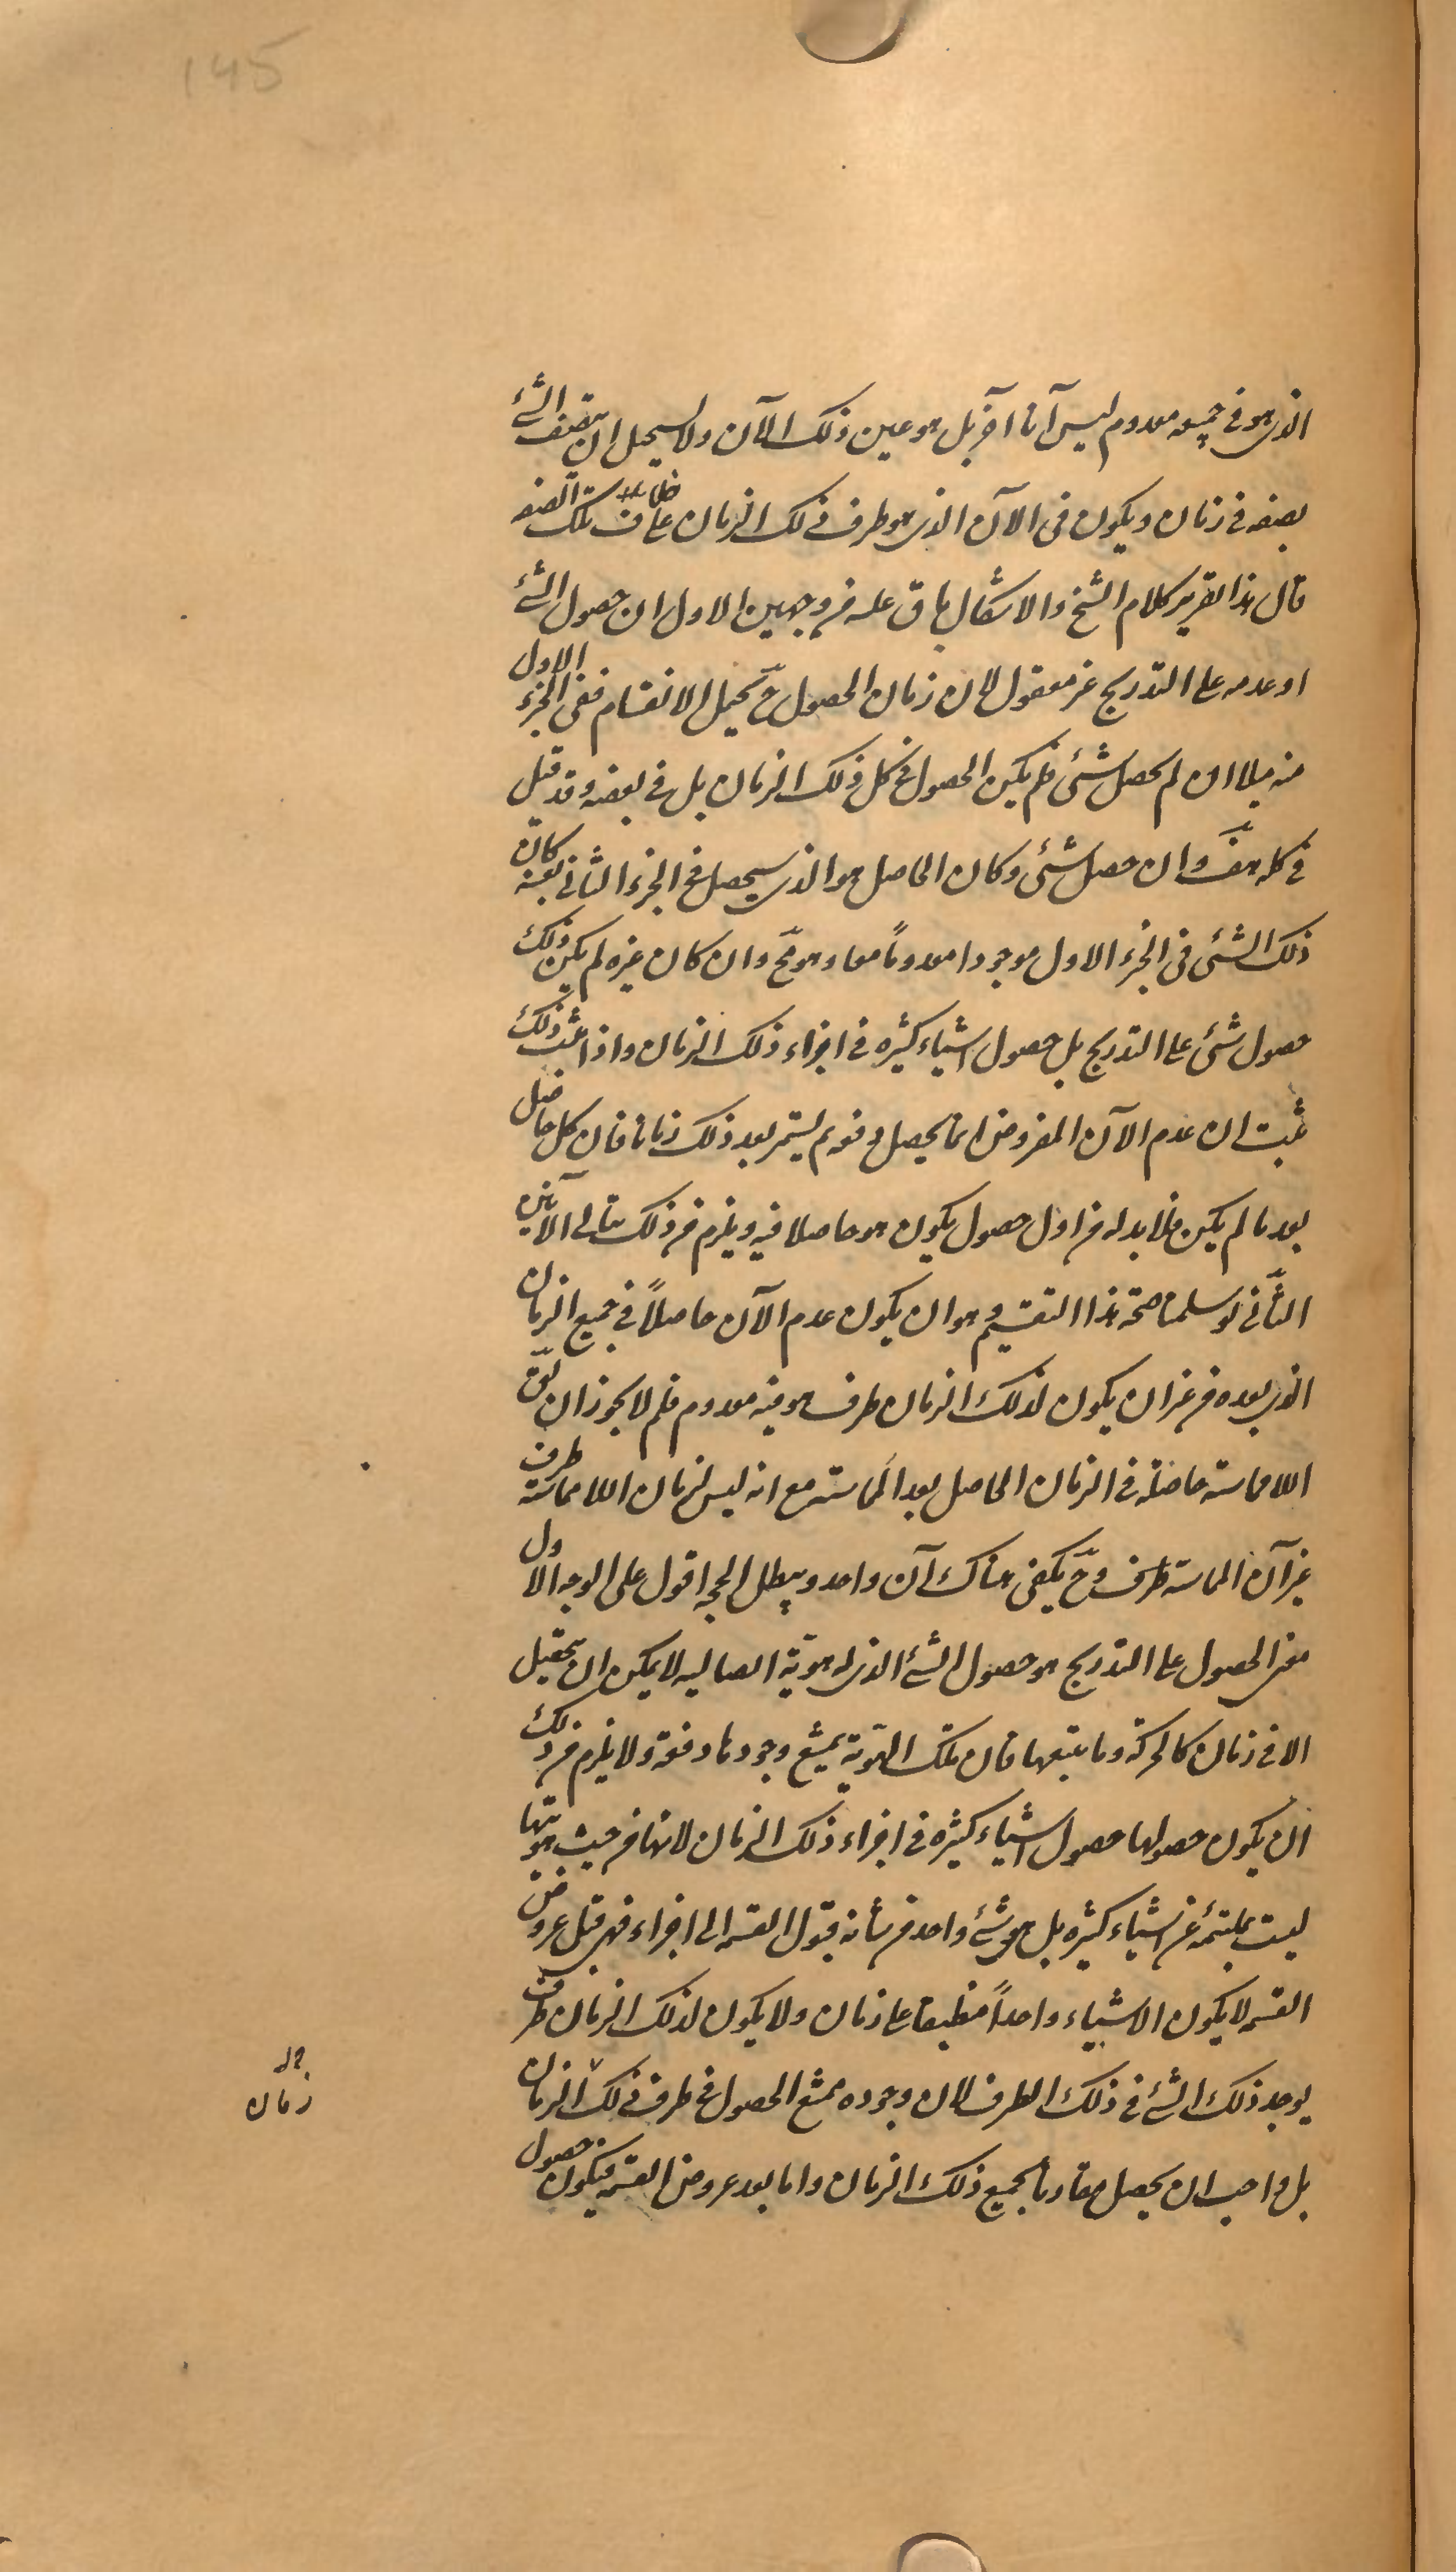 145
الذى هو فى جميعه معدوم ليس آنا آخر بل هو عين ذلك الآن ولا يستحيل ان يتصف الشئ
بصفة فى زمان ويكون فى الآن الذى هو طرف ذلك الزمان على خلاف تلك الصفة
قال هذا تقرير كلام الشيخ والاشكال باق عليه من وجهين الاول ان حصول الشئ
او عدمه على التدريج غير معقول لان زمان الحصول ح يحتمل الانقسام ففى الجزء الاول
منه مثلا ان لم يحصل شئى فلم يكن الحصول فى كل ذلك الزمان بل فى بعضه وقد قيل
فى كله هف وان حصل شئى وكان الحاصل هو الذى سيحصل فى الجزء الثانى بعينه كان
ذلك الشئى فى الجزء الاول موجودا معدوماً معا وهو مح وان كان غيره لم يكن ذلك
حصول شئى على التدريج بل حصول اشياء كثيرة فى اجزاء ذلك الزمان واذا ثبت ذلك
ثبت ان عدم الآن المفروض انما يحصل دفعة ثم يستمر بعد ذلك زمانا فان كل حاصل
بعد ما لم يكن فلا بد له من اول حصول يكون هو حاصلا فيه ويلزم من ذلك تتالى الآنين
الثانى لو سلمنا صحة هذا التقسيم وهو ان يكون عدم الآن حاصلاً فى جميع الزمان
الذى بعده من غير ان يكون لذلك الزمان طرف هو فيه معدوم فلم لا يجوز ان يق
اللامماسة حاصلة فى الزمان الحاصل بعد المماسة مع انه ليس لزمان اللامماسة طرف
غير آن المماسة طرف وح يكفى هناك آن واحد ويبطل الحجة اقول على الوجه الاول
معنى الحصول على التدريج هو حصول الشئ الذى له هوية اتصالية لا يمكن ان يتحصل
الا فى زمان كالحركة وما يتبعها فان تلك الهوية يمتنع وجودها دفعة ولا يلزم من ذلك
ان يكون حصولها حصول اشياء كثيرة فى اجزاء ذلك الزمان لانها من حيث هويتها
ليست بملتئمة عن اشياء كثيرة بل هو شئ واحد من شأنه قبول القسمة الى اجزاء فهى قبل عروض
القسمة لا يكون الا شياء واحداً منطبقا على زمان ولا يكون لذلك الزمان طرف
يوجد ذلك الشئ فى ذلك الطرف لان وجوده ممتنع الحصول فى طرف ذلك الزمان
بل واجب ان يحصل مقارنا لجميع ذلك الزمان واما بعد عروض القسمة فيكون حصول
زمان